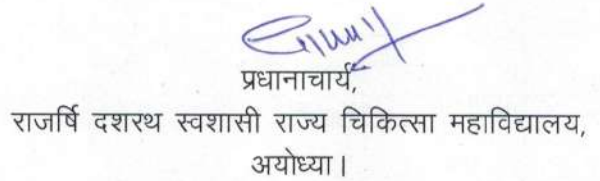 प्रधानाचार्य,
राजर्षि दशरथ स्वशासी राज्य चिकित्सा महाविद्यालय,
अयोध्या।